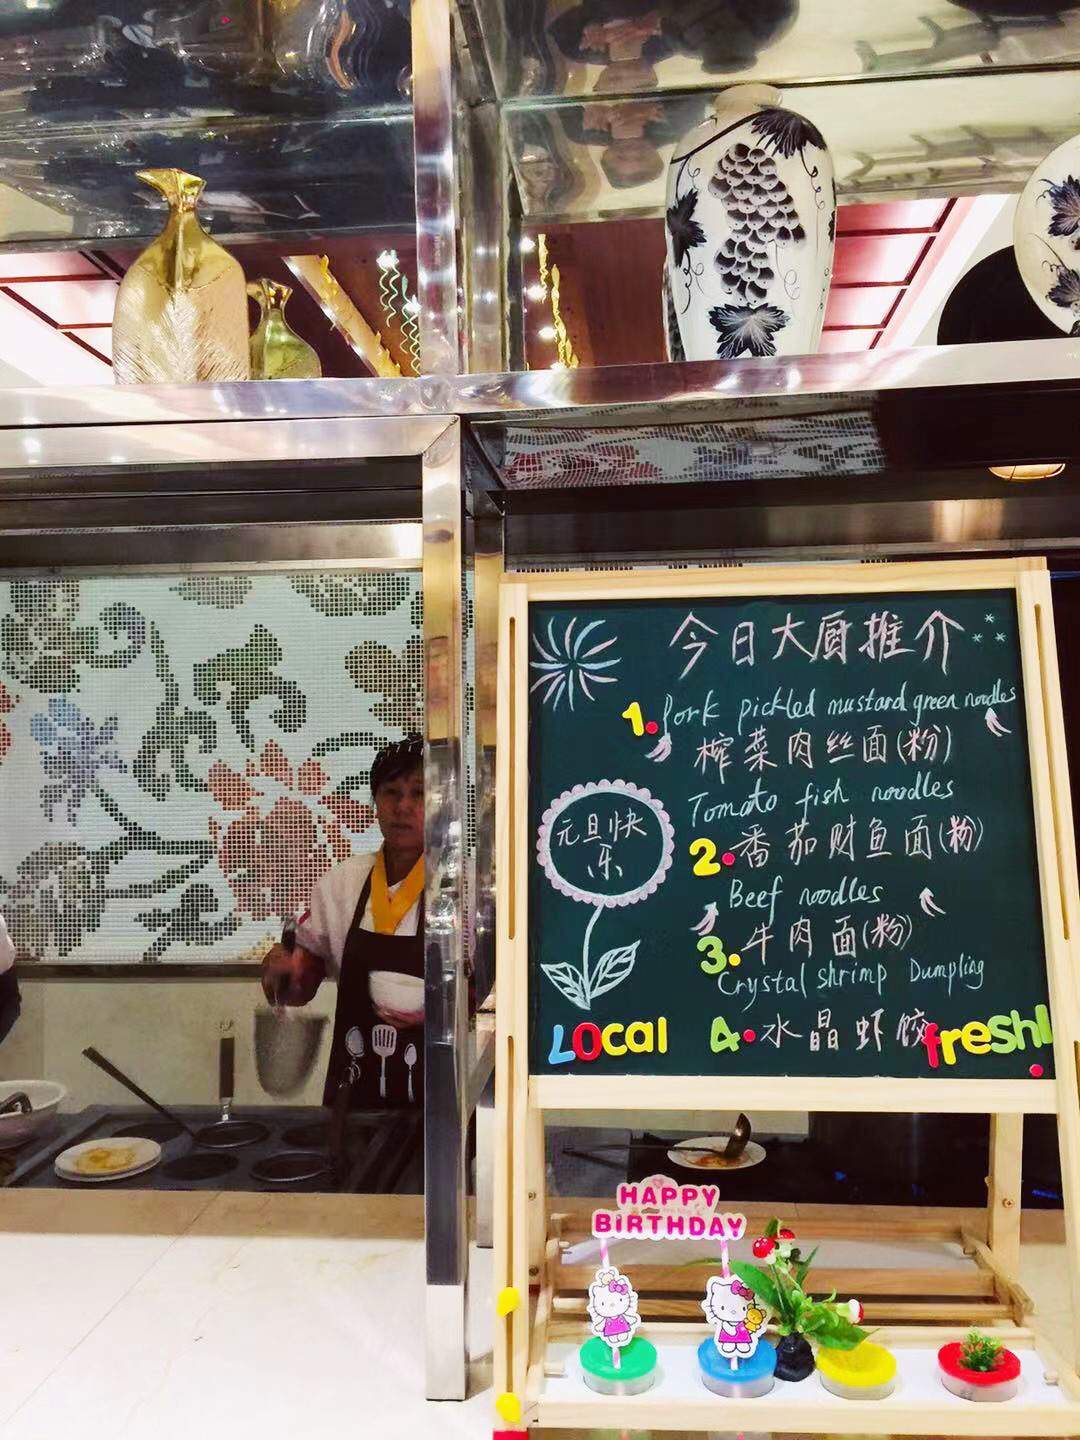 今日大厨推介
1.Pork pickled mustard green noodles
榨菜肉丝面(粉)
Tomato fish noodles
2.番茄财鱼面(粉)
元旦快
乐
Beef noodles
3.牛肉面(粉)
Crystal shrimp Dumpling
4.水晶虾饺
LOcal
fresh!
HAPPY
BIRTHDAY